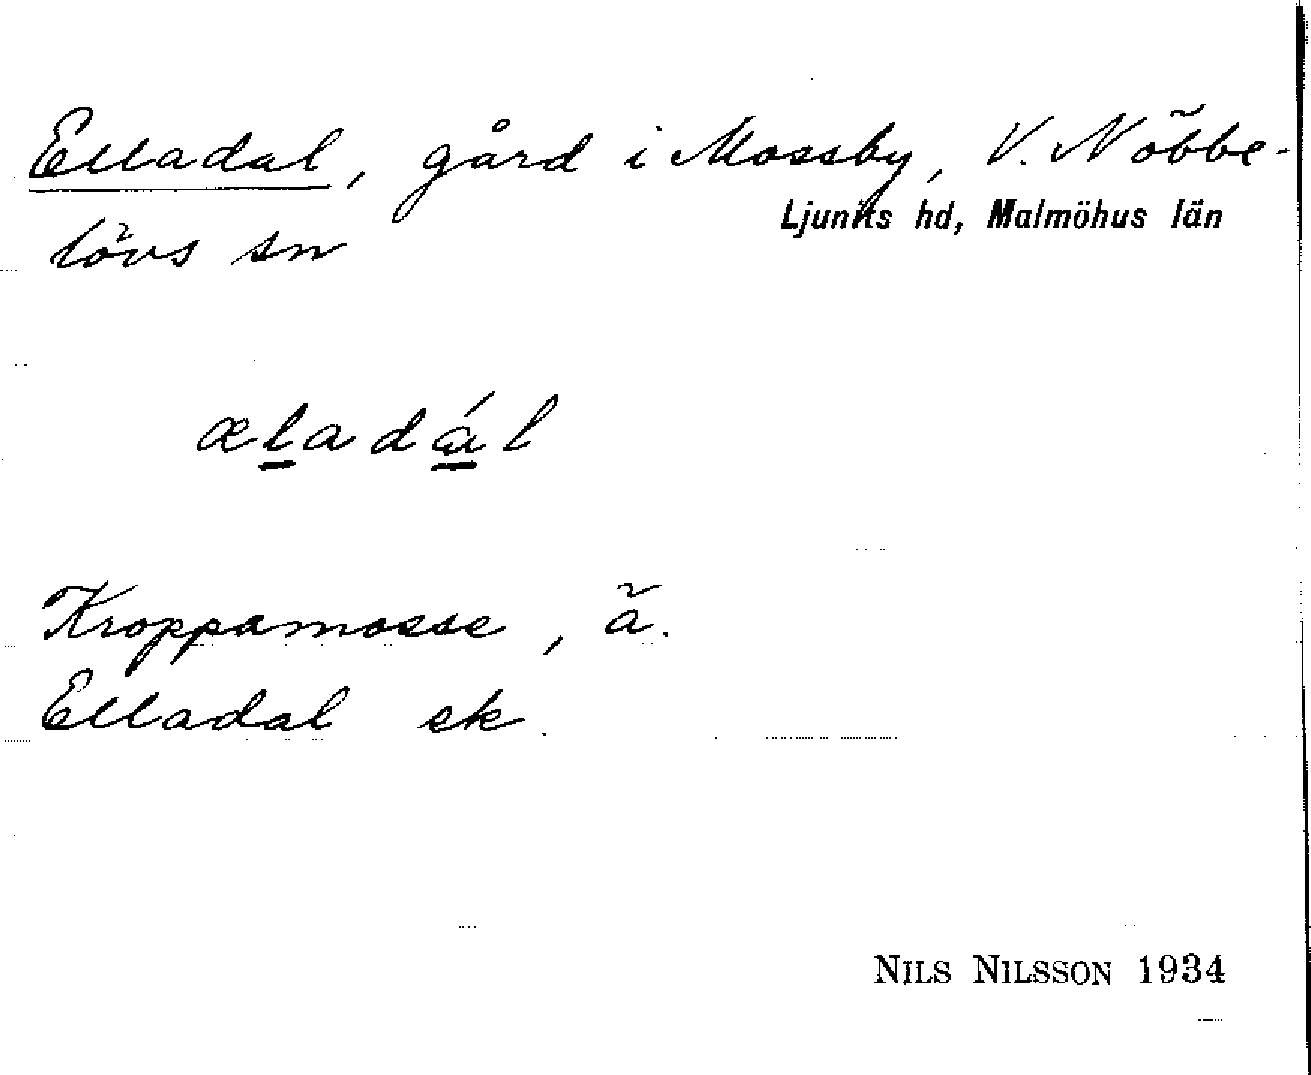 Elladal, gård i Mossby, V. Nöbbe-
Ljunits hd, Malmöhus län
lövs sn
æl̲adá̲l
Kroppamosse, ä.
Elladal ek.
NILS NILSSON 1934